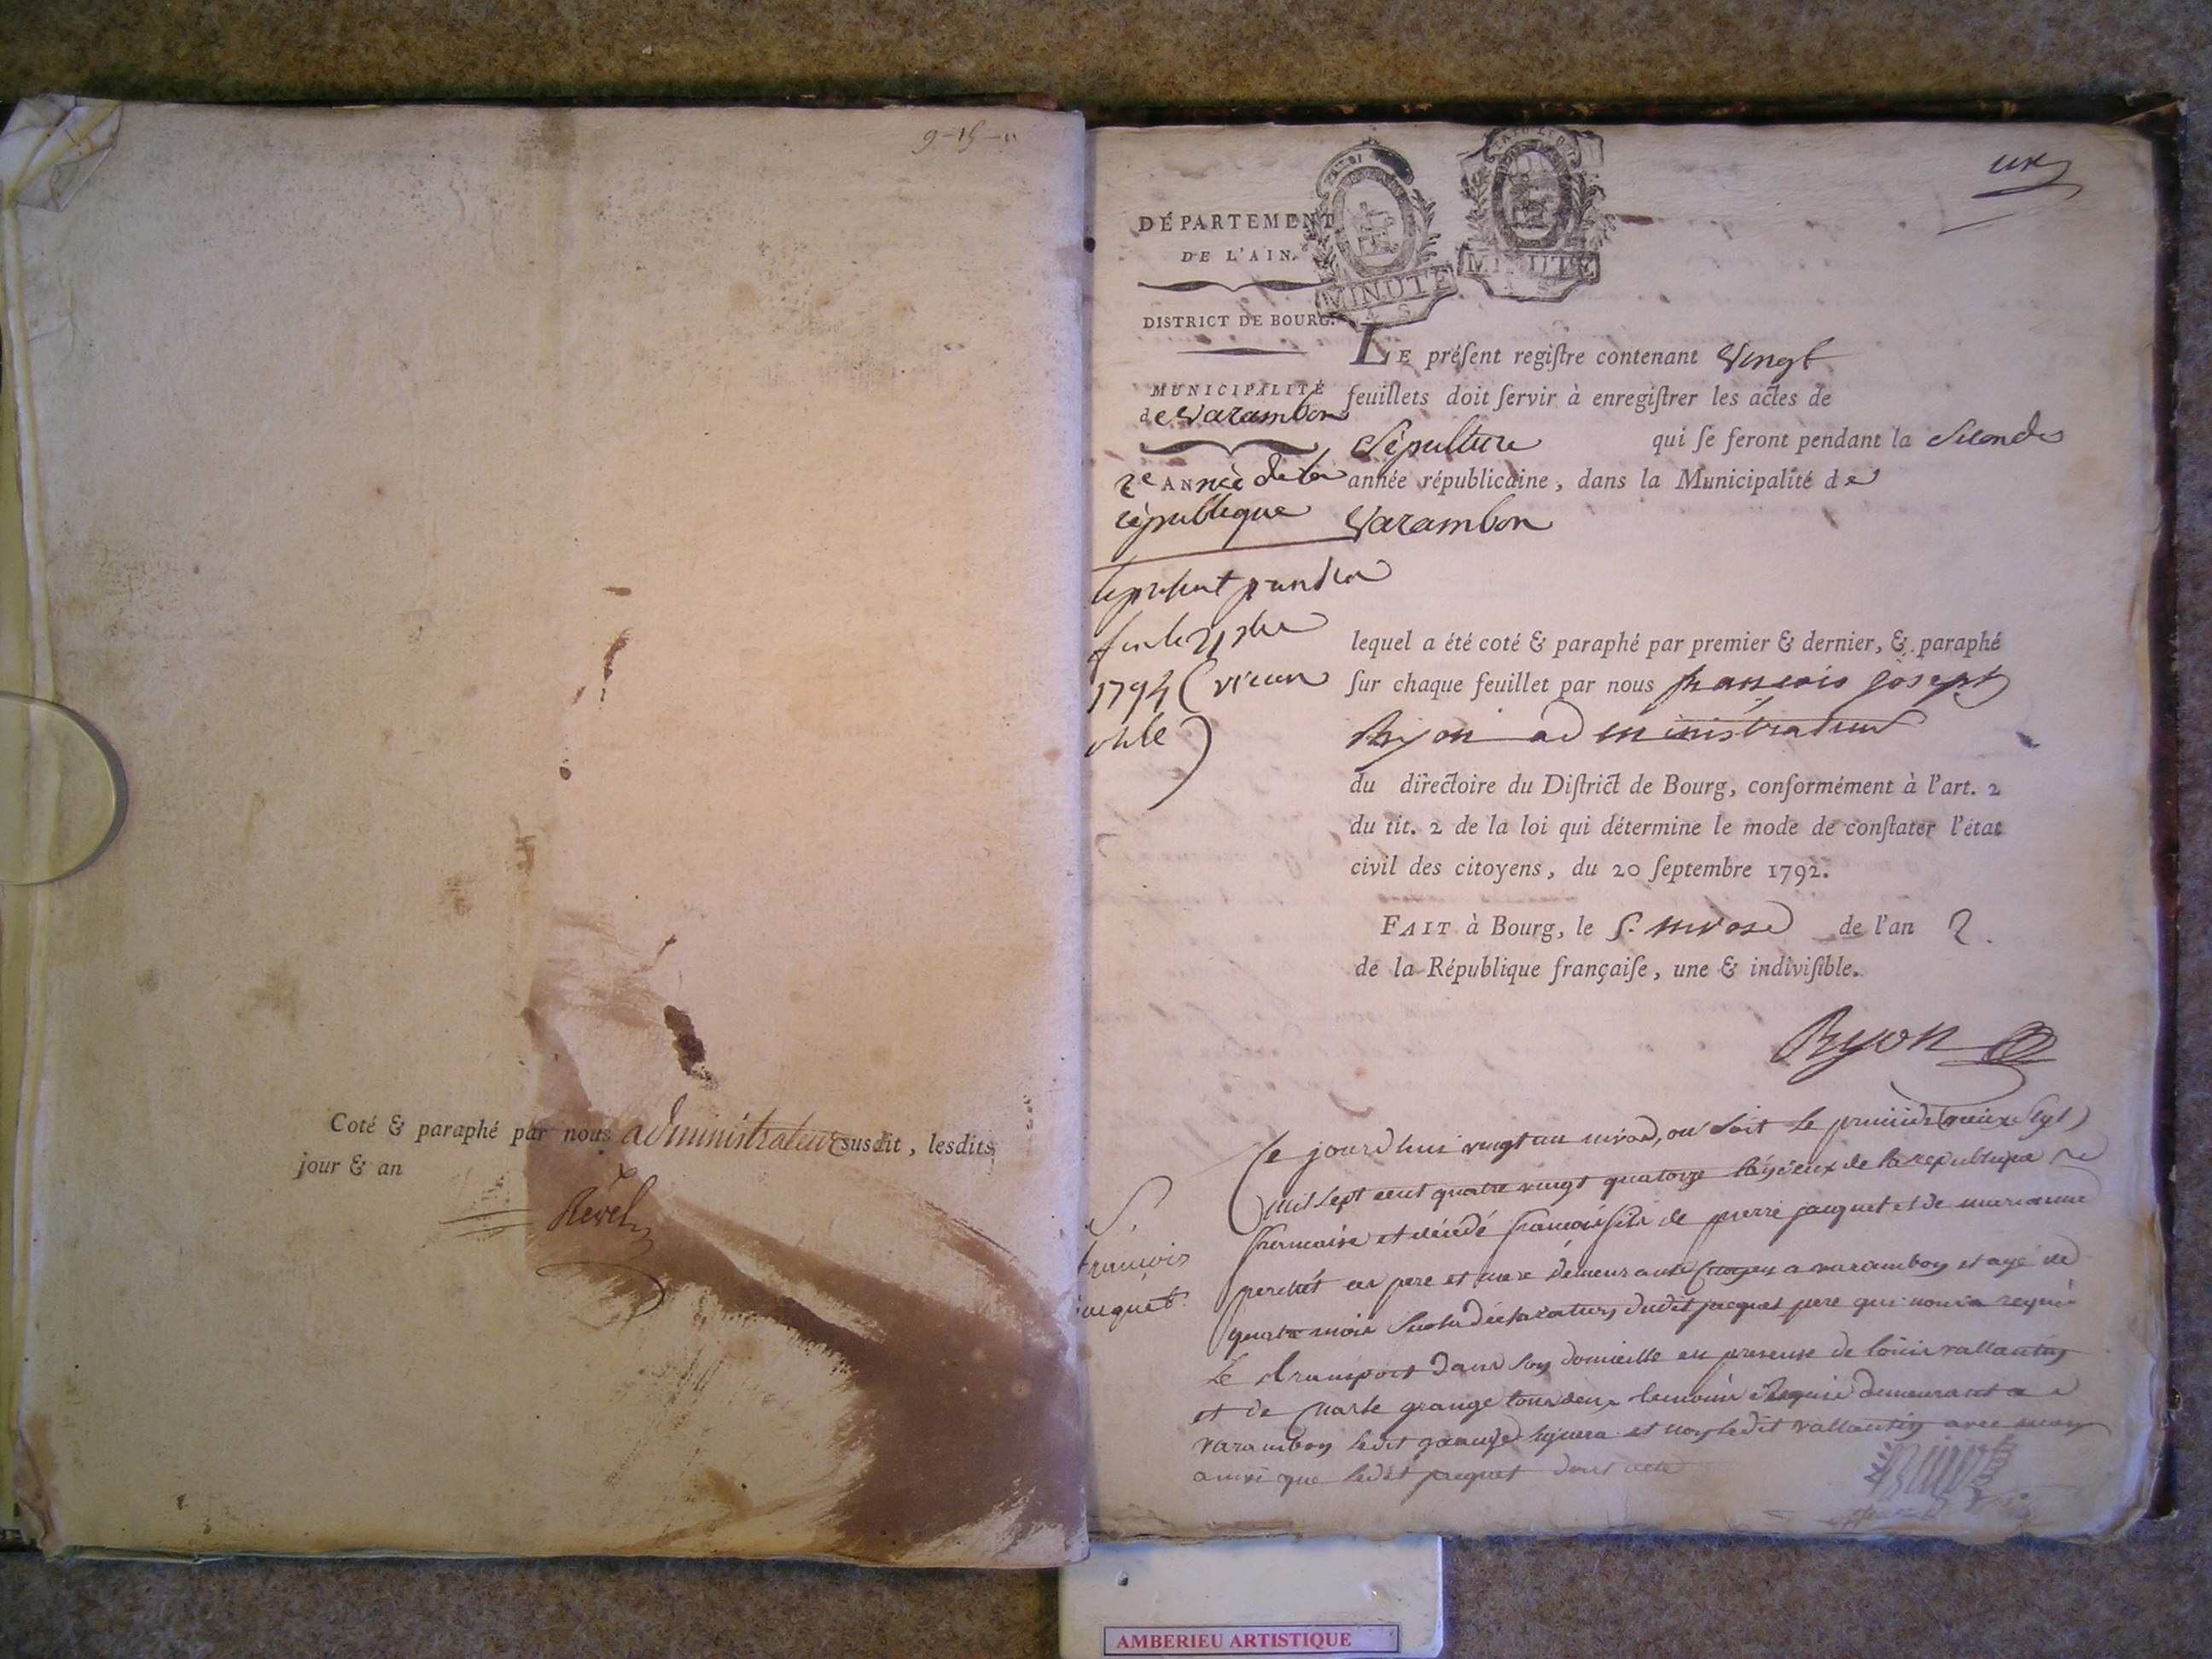 Coté & paraphé par nous administrateur susdit, lesdits
jour & an
Revel
un
DÉPARTEMENT
DE L'AIN.
MINUTE
MINUTE
DISTRICT DE BOURG.
MUNICIPALITÉ
de Varambon
2e ANNée de la
république
le présent
1794 (vieux
stile)
LE préſent regiſtre contenant Vingt
feuillets doit ſervir à enregiſtrer les actes de
Sépulture qui ſe feront pendant la Seconde
année républicaine, dans la Municipalité de
Varambon
lequel a été coté & paraphé par premier & dernier, & paraphé
ſur chaque feuillet par nous françois joseph
Ryon administrateur
du directoire du Diſtrict de Bourg, conformément à l'art. 2
du tit. 2 de la loi qui détermine le mode de conſtater l'état
civil des citoyens, du 20 ſeptembre 1792.
FAIT à Bourg, le 5. nivose de l'an 2.
de la République françaiſe, une & indiviſible.
Ryon
S.
françois
jacquet
Ce jourd'hui vingt un nivose, ou soit le
mil sept cent quatre vingt quatorze de la republique
et décédé françois fils de pierre jacquet et de marianne
perchet ses pere et mere demeurants a varambon et agé de
quatre mois sur la déclaration dudit jacquet pere qui nous a requis
le transport dans son domicille en presence de louis vallantin
et de Charle grange tous deux temoins requis demeurant a
varambon ledit grange signera et non ledit vallantin avec nous
ainsi que ledit jacquet dont acte
AMBERIEU ARTISTIQUE